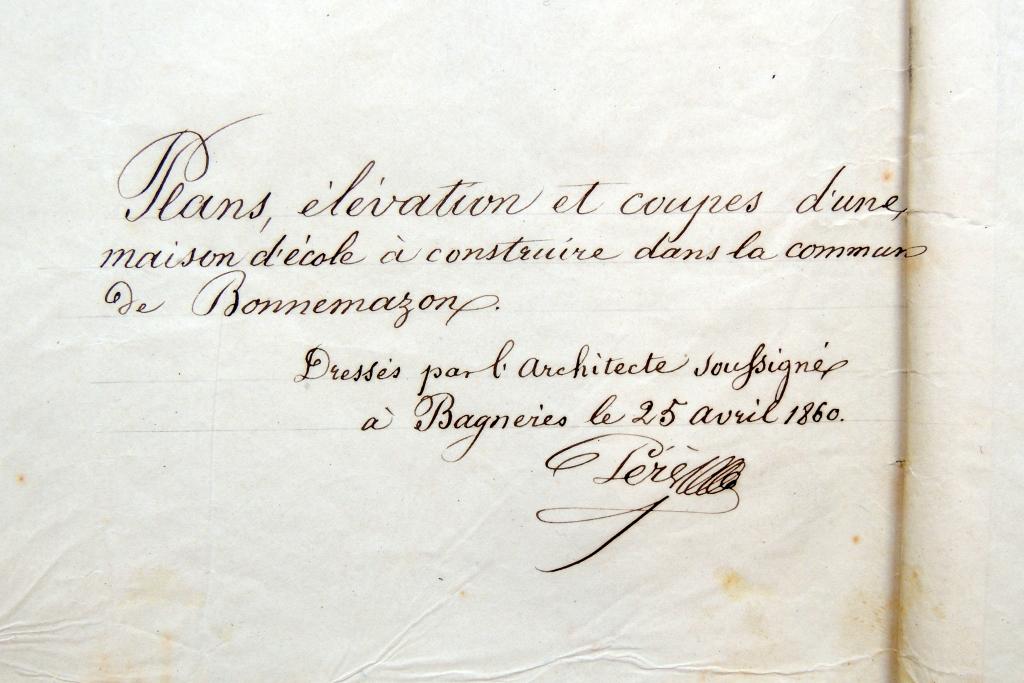 Plans, élévation et coupes d'une
maison d'école à construire dans la commun
de Bonnemazon.
Dressés par l'Architecte soussigné
à Bagneres le 25 avril 1860.
Péré